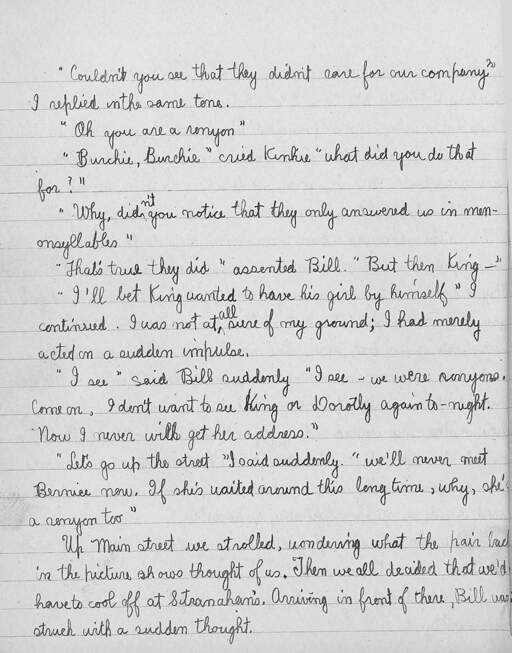 "Couldn't you see that they didn't care for our company?"
I replied in the same tone.
"Oh you are a ronyon"
"Burchie, Burchie" cried Kinkie "what did you do that
for?"
"Why, didn't you notice that they only answered us in men-
onsyllables"
"That's true they did" assented Bill. "But then King —"
"I'll bet King wanted to have his girl by himself" I
continued. I was not at all sure of my ground; I had merely
acted on a sudden impulse.
"I see" said Bill suddenly "I see - we were ronyons.
Come on, I don't want to see King or Dorotly again to-night.
Now I never will get her address."
"Let's go up the street" I said suddenly. "we'll never meet
Bernice now. If she's waited around this long time, why, she's
a ronyon too"
Up Main street we strolled, wondering what the pair back
in the picture shows thought of us. Then we all decided that we'd
have to cool off at Stranahan's. Arriving in front of there, Bill was
struck with a sudden thought.